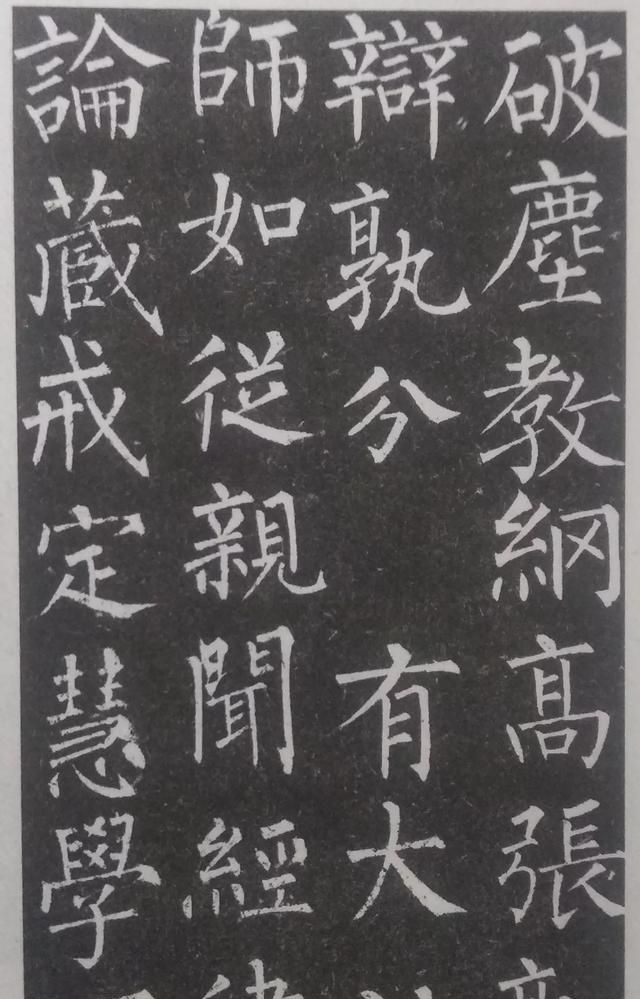 破塵教綱高張
辯孰分 有大
師如從親聞經
論藏戒定慧學